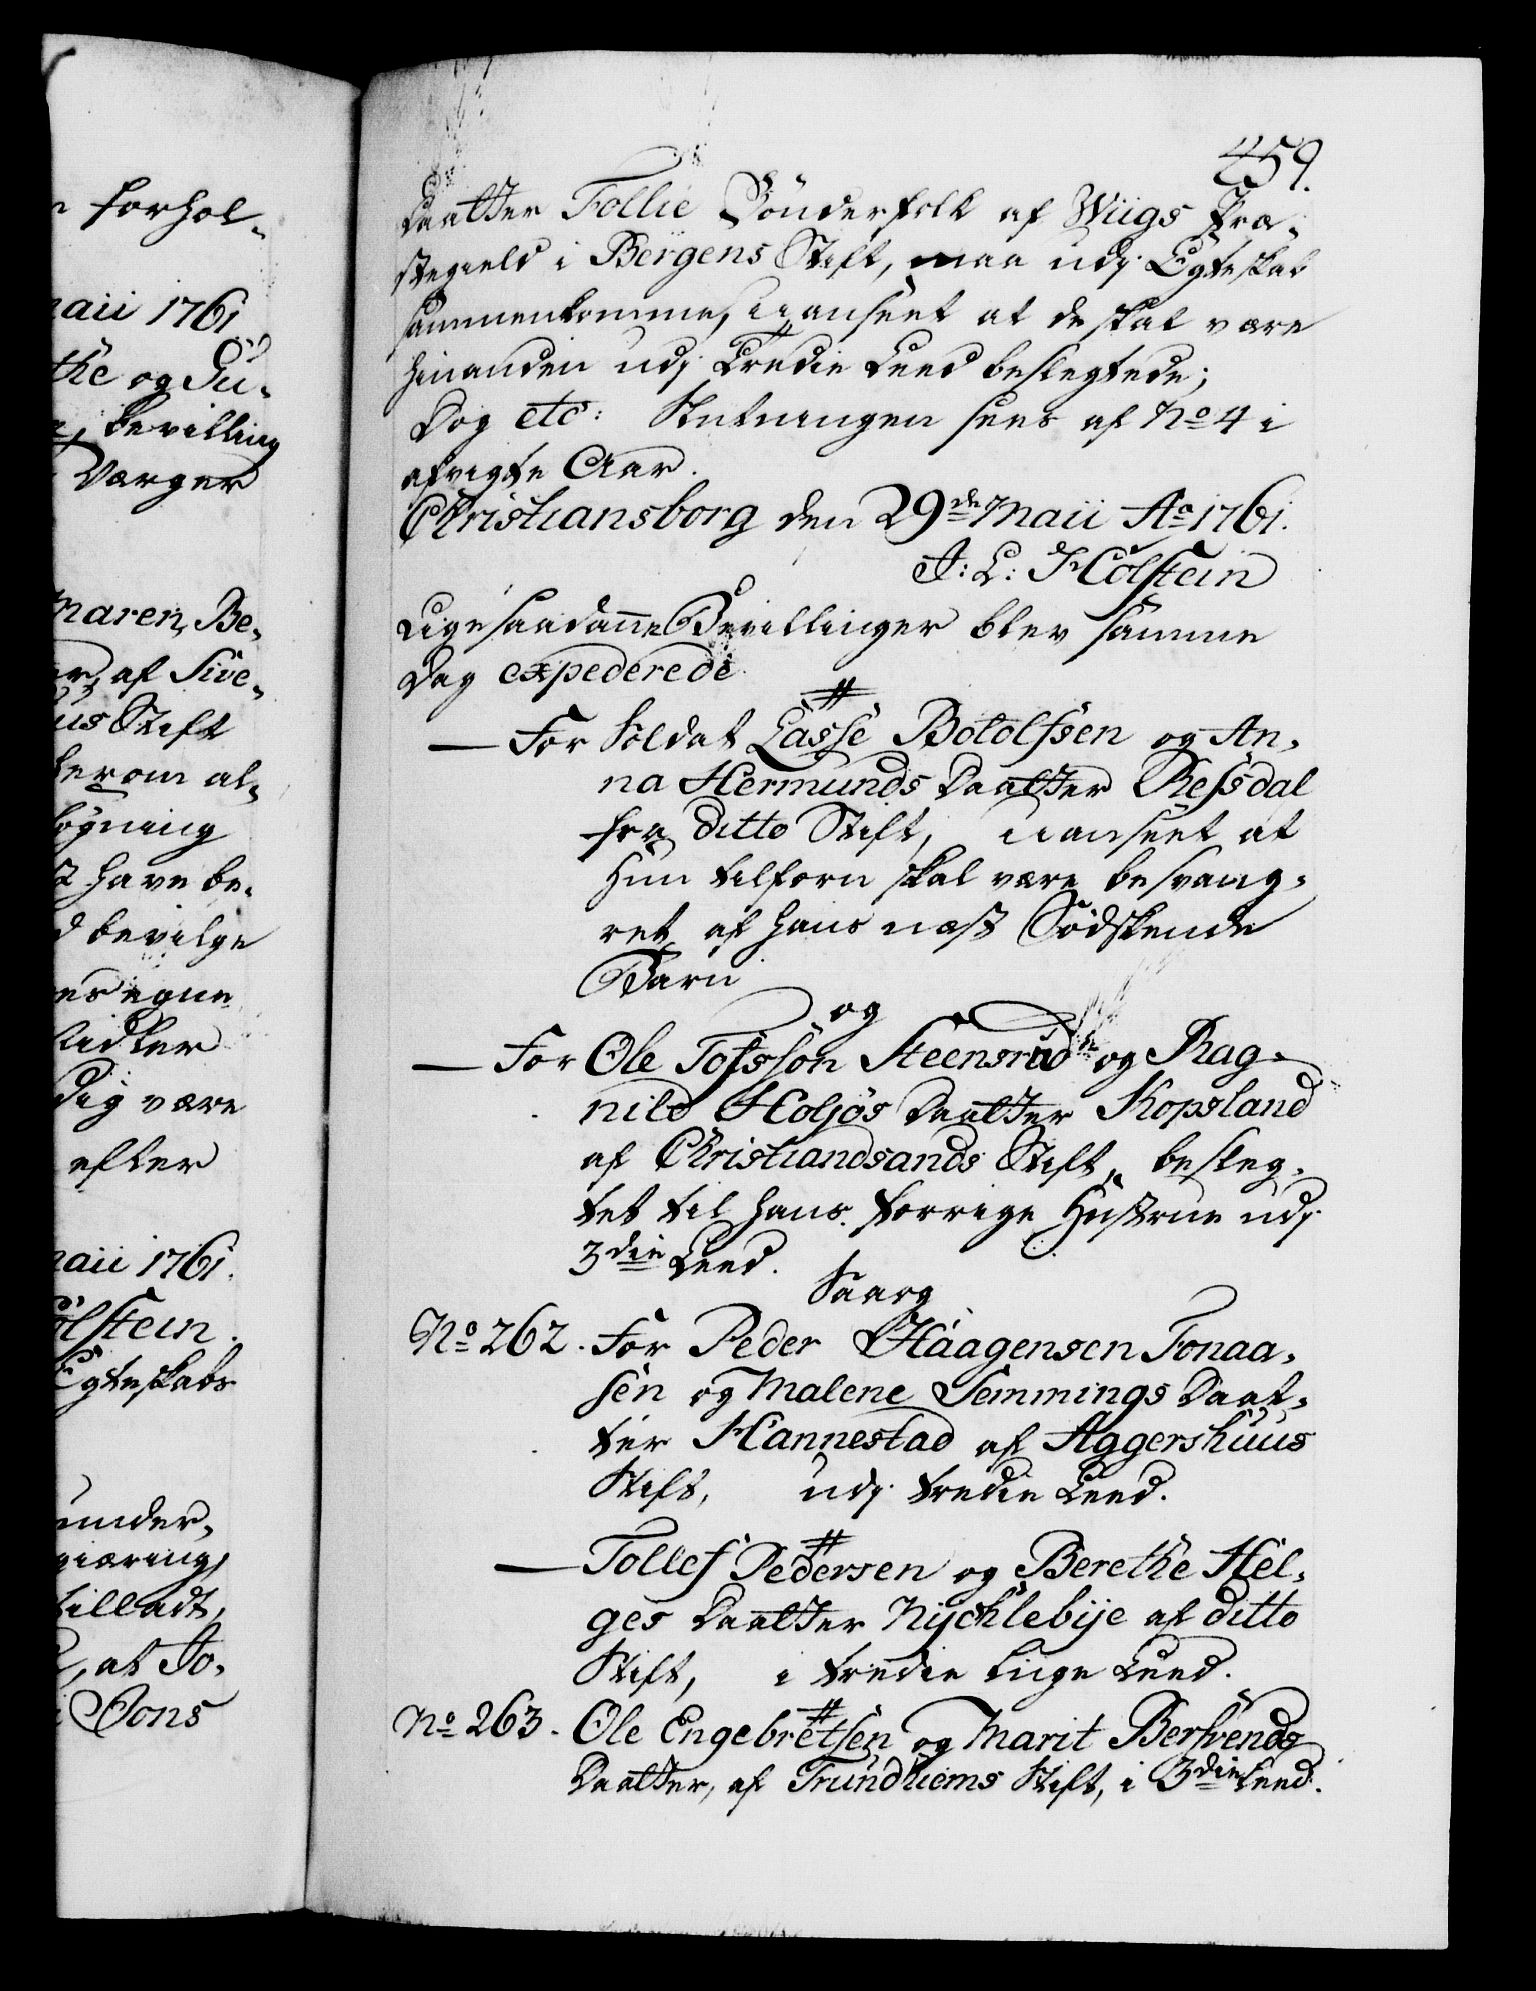 n forhol-
naii 1761
the og Su-
Bevilling
Værger
Maren, Be-
er, af Sive-
uus Stift
derom al-
søgning
have be-
bevilge
es egne
være
efter
naii 1761.
olstein.
Egteskabs
under-
giæring,
tilladt,
at Jo-
Jons
459.
Daatter Follie Bønderfolk af Wiigs Præ-
stegield i Bergens Stift, maa udj Egteskab
sammenkomme, uanseet at de skal være
hinanden udj Tredie Leed beslegtede;
Dog etc: Slutningen sees af No 4 i
afvigte Aar.
Christiansborg den 29de Maii Ao 1761.
J: L: Holstein
Ligesaadanne Bevillinger blev samme
Dag expederede
— For Soldat Lasse Botolfsen og An-
na Hermunds Daatter Ressdal
fra ditto Stift, uanseet at
Hun tilforn skal være besvang-
ret af hans næst Södskende
Barn
og
— For Ole Tofssön Steensrud og Rag-
nild Holjös Daatter Kopsland
af Christiandsands Stift, besleg-
tet til hans forrige Hustrue udj
3die Leed.
Saag
No 262. For Peder Haagensen Tonaa-
sen og Malene Semmings Daat-
ter Hannestad af Aggershuus
Stift, udj tredie Leed.
— Tollef Pedersen og Berethe Hel-
ges Daatter Nychlebÿe af ditto
Stift, i tredie liige Leed.
No 263. Ole Engebretsen og Marit Bersvends
Daatter, af Trundhiems Stift, i 3die Leed.